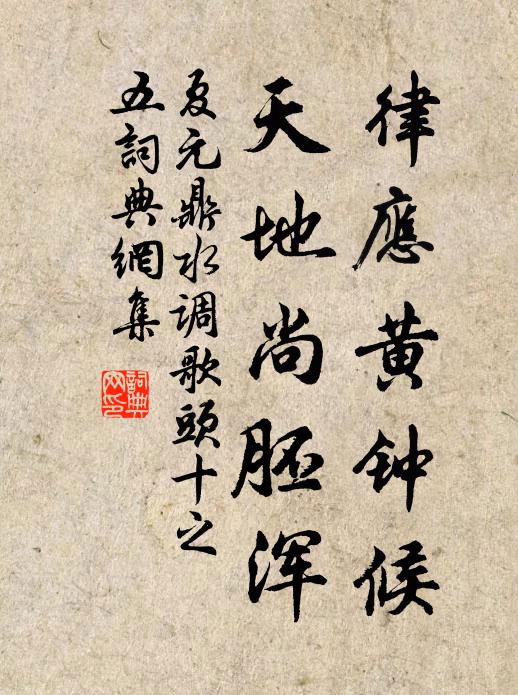 律應黄钟候
天地尚胚浑
夏元鼎水调歌頭十之
五詞典網集
詞典网印